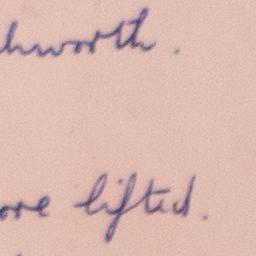 hworth.
ore lifted.